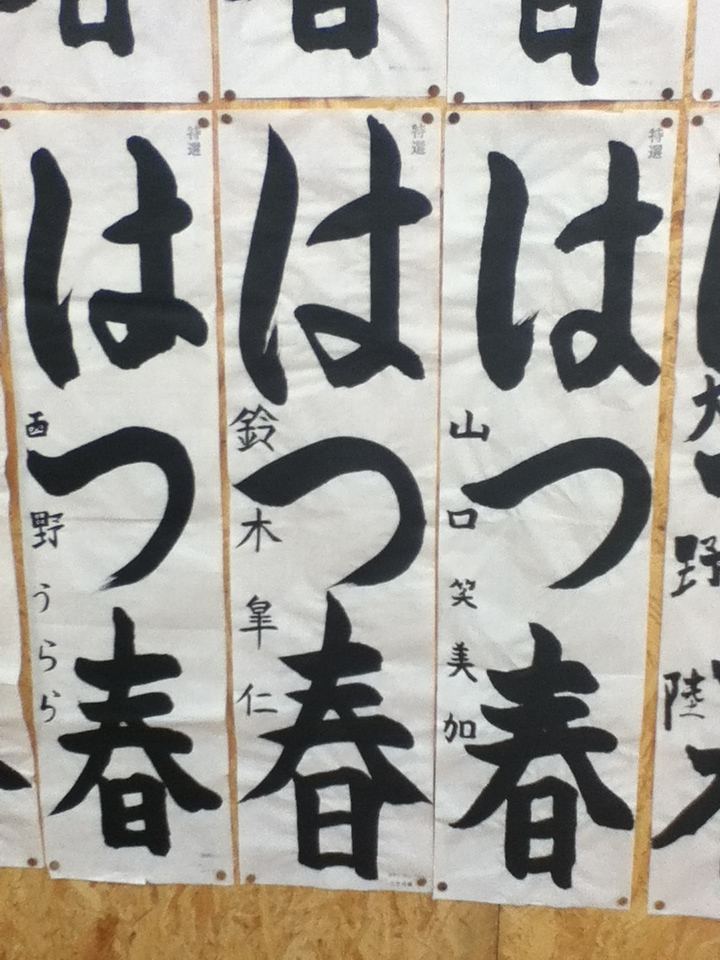 特選
はつ春
山口笑美加
特選
はつ春
鈴木皐仁
特選
はつ春
西野うらら
野
陸